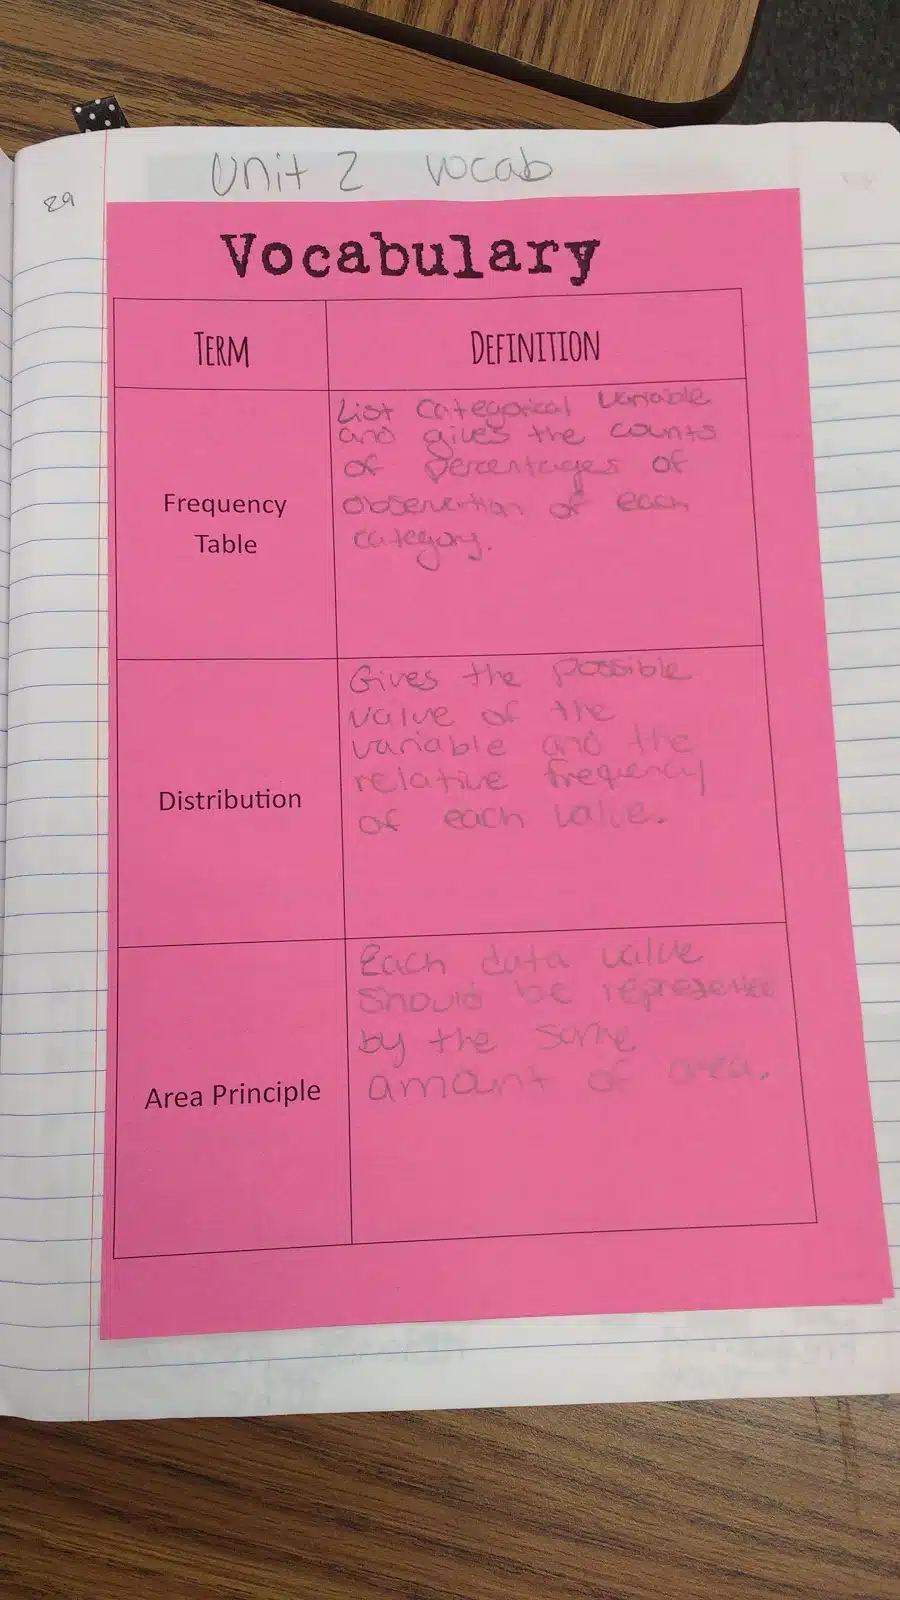 Unit 2 vocab
29
Vocabulary
TERM
DEFINITION
Frequency
Table
List categorical variable
and gives the counts
of percentages of
observation of each
category.
Distribution
Gives the possible
value of the
variable and the
relative frequency
of each value.
Area Principle
Each data value
should be represented
by the same
amount of area.